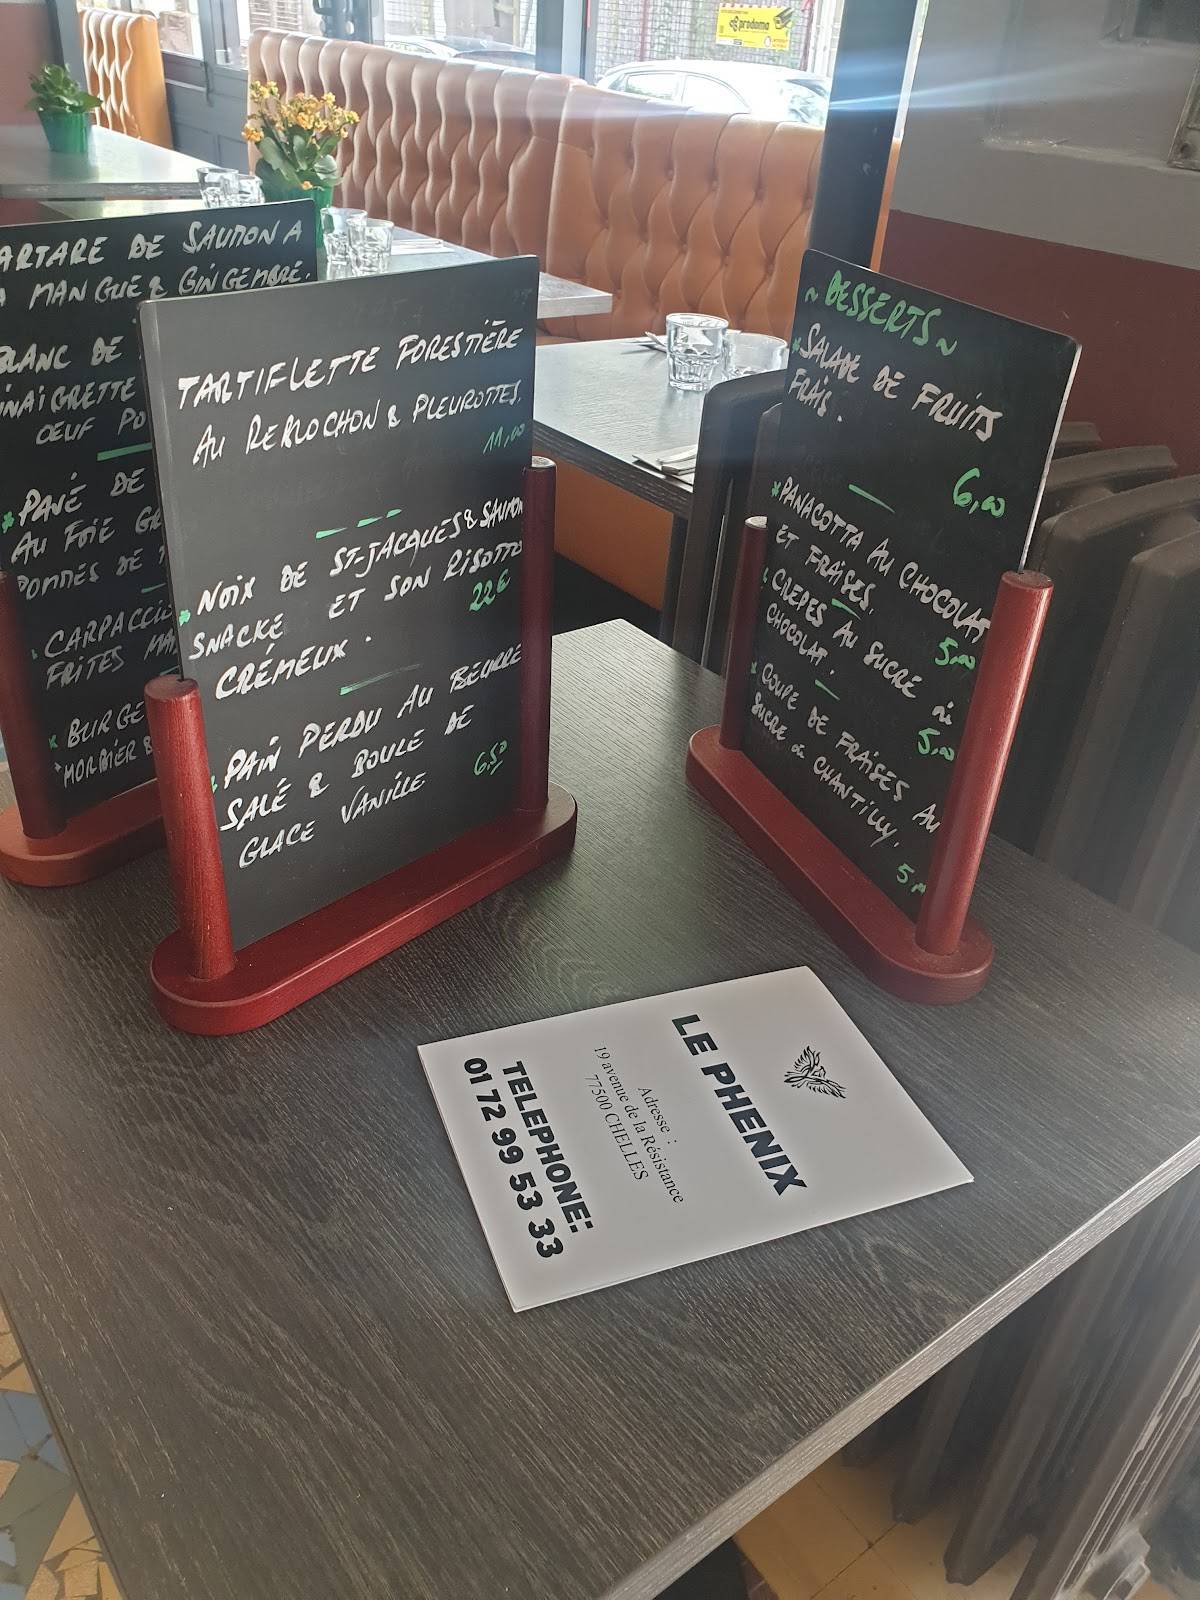 prodoma
ARTARE DE SAUMON A
MANGUE & GINGEMBRE.
BLANC DE
INAIGRETTE
OEUF PO
* PAVÉ DE
AU FOIE GR
POMMES DE
CARPACCIO
FRITES MA
* BURGE
MORBIER &
TARTIFLETTE FORESTIÈRE
AU REBLOCHON & PLEUROTTES.
11,00
* NOIX DE ST-JACQUES & SAUMON
SNACKÉ ET SON RISOTTO
CRÉMEUX. 22€
PAIN PERDU AU BEURRE
SALÉ & BOULE DE
GLACE VANILLE 6,50
~ DESSERTS ~
* SALADE DE FRUITS
FRAIS.
6,00
* PANACOTTA AU CHOCOLAT
ET FRAISES.
5,00
CREPES AU SUCRE OU
CHOCOLAT.
5,00
* COUPE DE FRAISES AU
SUCRE OU CHANTILLY.
LE PHENIX
Adresse :
19 avenue de la Résistance
77500 CHELLES
TELEPHONE:
01 72 99 53 33